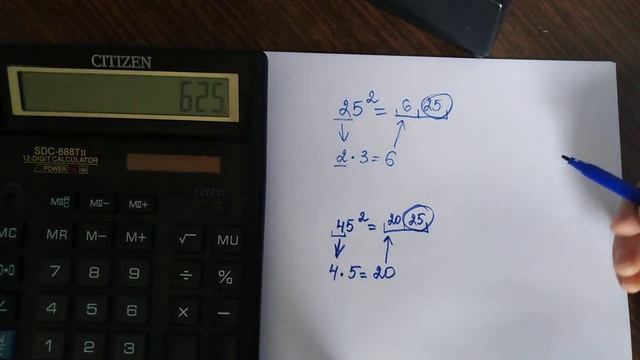 CITIZEN
625
SDC-888TII
12-DIGIT CALCULATOR
POWER
MII- MII+
MC MR M- M+ √ MU
7 8 9 ÷ %
4 5 6 × −
1 2 3
25² = 6 25
2 · 3 = 6
45² = 20 25
4 · 5 = 20